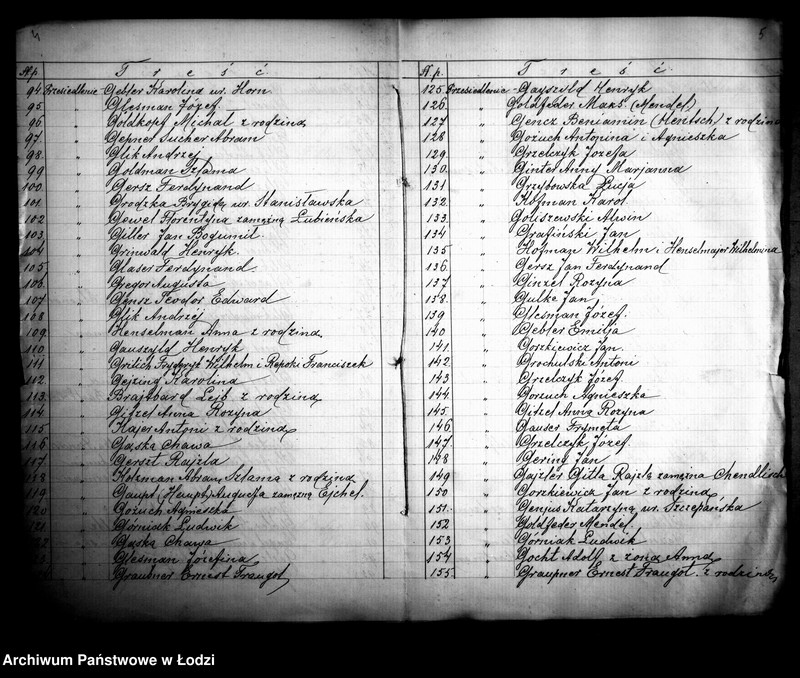 5
N.p. Treść
94 Przesiedlenie Gebler Karolina ur. Horn
95 „ Glesman Józef
96 „ Goldkopf Michał z rodziną
97. „ Gepner Sucher Abram
98. „ Glik Andrzej
99 „ Goldman Szlama
100. „ Gersz Ferdynand
101. „ Grodzka Brygida ur. Stanisławska
102. „ Gewel Florentyna zamężna Lubieńska
103. „ Giller Jan Bogumił
104. „ Grinwald Henryk.
105 „ Glaser Ferdynand.
106. „ Gregor Augusta
107 „ Gensz Teodor Edward
108 „ Glik Andrzej
109. „ Henselman Anna z rodziną
110 „ Gauszyld Henryk
111 „ Grilich Fryderyk Wilhelm i Repski Franciszek
112. „ Gejzing Karolina
113. „ Brajtbard Lejb z rodziną
114. „ Gitzel Anna Rozyna
115. „ Kajer Antoni z rodziną
116 „ Gąska Chawa
117 „ Gerszt Rajzla
118 „ Kolzman Abram Szlama z rodziną
119 „ Gaupt (Haupt) Augusta zamężna Ejchel.
120 „ Gożuch Agnieszka
121. „ Górniak Ludwik
„ Gąska Chawa
„ Glesman Józefina
„ Graupner Ernest Traugot
N.p. Treść
125 Przesiedlenie - Gayszyld Henryk
126 „ Goldfeder Maks. (Mendel)
127 „ Gencz Beniamin (Hentsch) z rodziną
128 „ Gożuch Antonina i Agnieszka
129. „ Grzelczyk Józefa
130. „ Ginter Anny Marjanna
131 „ Grzybowska Łucja
132. „ Hofman Karol
133. „ Goliszewski Alwin
134 „ Grafiński Jan
135 „ Hofman Wilhelm i Henselmajer Wilhelmina
136. „ Gersz Jan Ferdynand
137 „ Ginzel Rozyna
138. „ Gulke Jan
139 „ Glesman Józef.
140 „ Gebler Emilja
141. „ Gorzkiewicz Jan.
142. „ Grochulski Antoni
143 „ Grzelczyk Józef.
144. „ Gorzuch Agnieszka
145. „ Gitzel Anna Rozyna
146 „ Gauser Frymeta
147. „ Grzelczyk Józef.
148 „ Gering Jan
149 „ Gajzler Gitla Rajzla zamężna Chendlisch
150 „ Gorzkiewicz Jan z rodziną
151. „ Genjus Katarzyna ur. Szczepańska
152 „ Goldfeder Mendel.
153 „ Górniak Ludwik
154 „ Gocht Adolf z żoną Anną
155 „ Graupner Ernest Traugot. z rodziną
Archiwum Państwowe w Łodzi